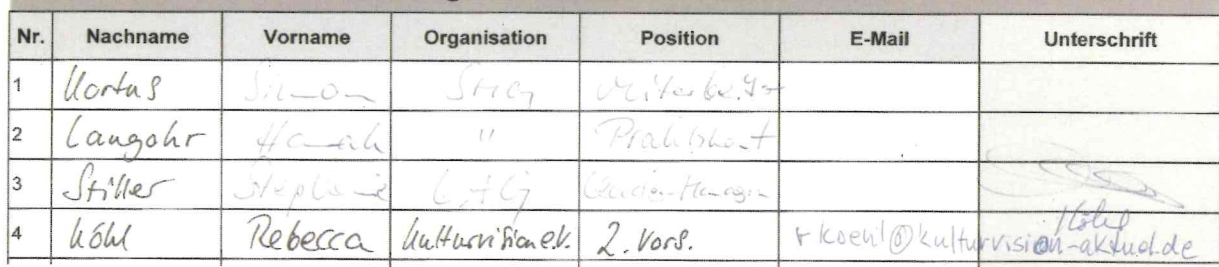 Nr. Nachname Vorname Organisation Position E-Mail Unterschrift
1 Kortus Simon Mitarbeiter
2 Langohr Hannah " Praktikant
3 Stiller Stephanie
4 Köhl Rebecca Kulturvision e.V. 2. Vors. rkoehl@kulturvision-aktuell.de Köhl